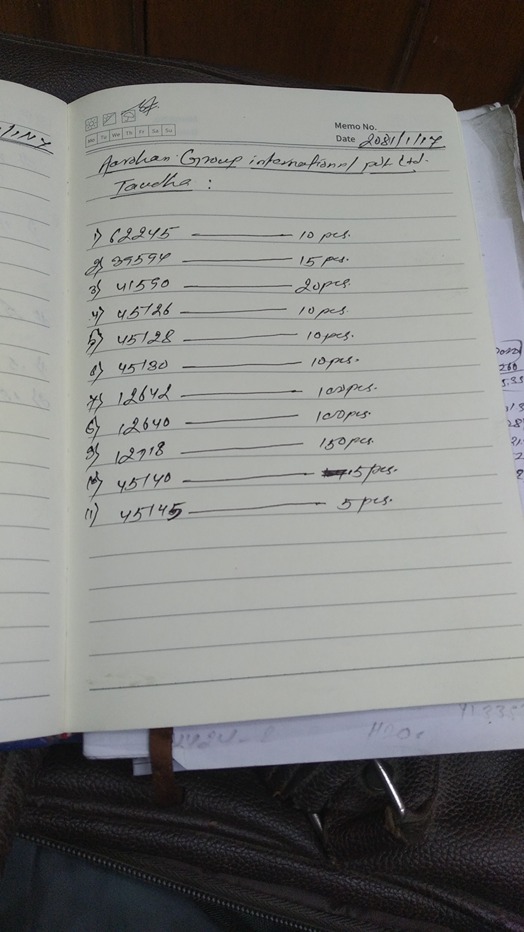 Mo Tu We Th Fr Sa Su
Memo No.
Date 2081/1/17
Aarohan Group international pvt Ltd.
Taudha :
1) 62245 10 pcs.
2) 39594 15 pcs.
3) 41590 20 pcs.
4) 45126 10 pcs.
5) 45128 10 pcs.
6) 45130 10 pcs.
7) 12642 100 pcs.
8) 12640 100 pcs.
9) 12718 150 pcs.
10) 45140 5 pcs.
11) 45145 5 pcs.